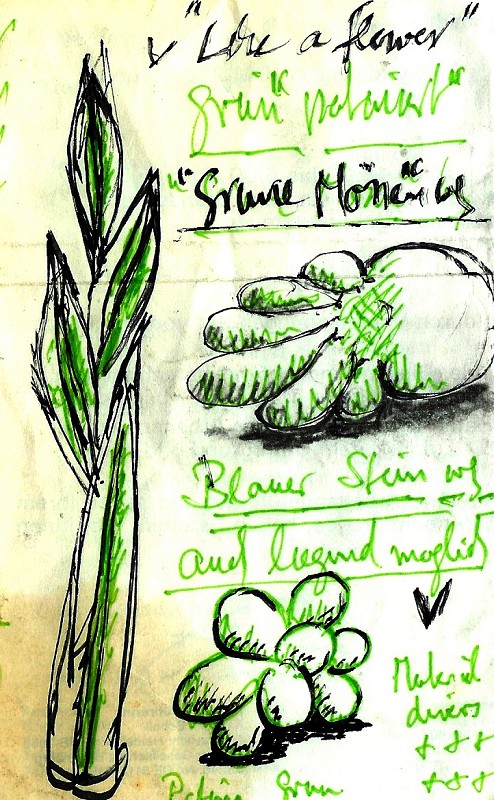 "Like a flower"
Grün" patiniert"
"Grüne
Blauer Stein
auch liegend möglich
Material
divers
+ + +
Patina Grün
+ + +